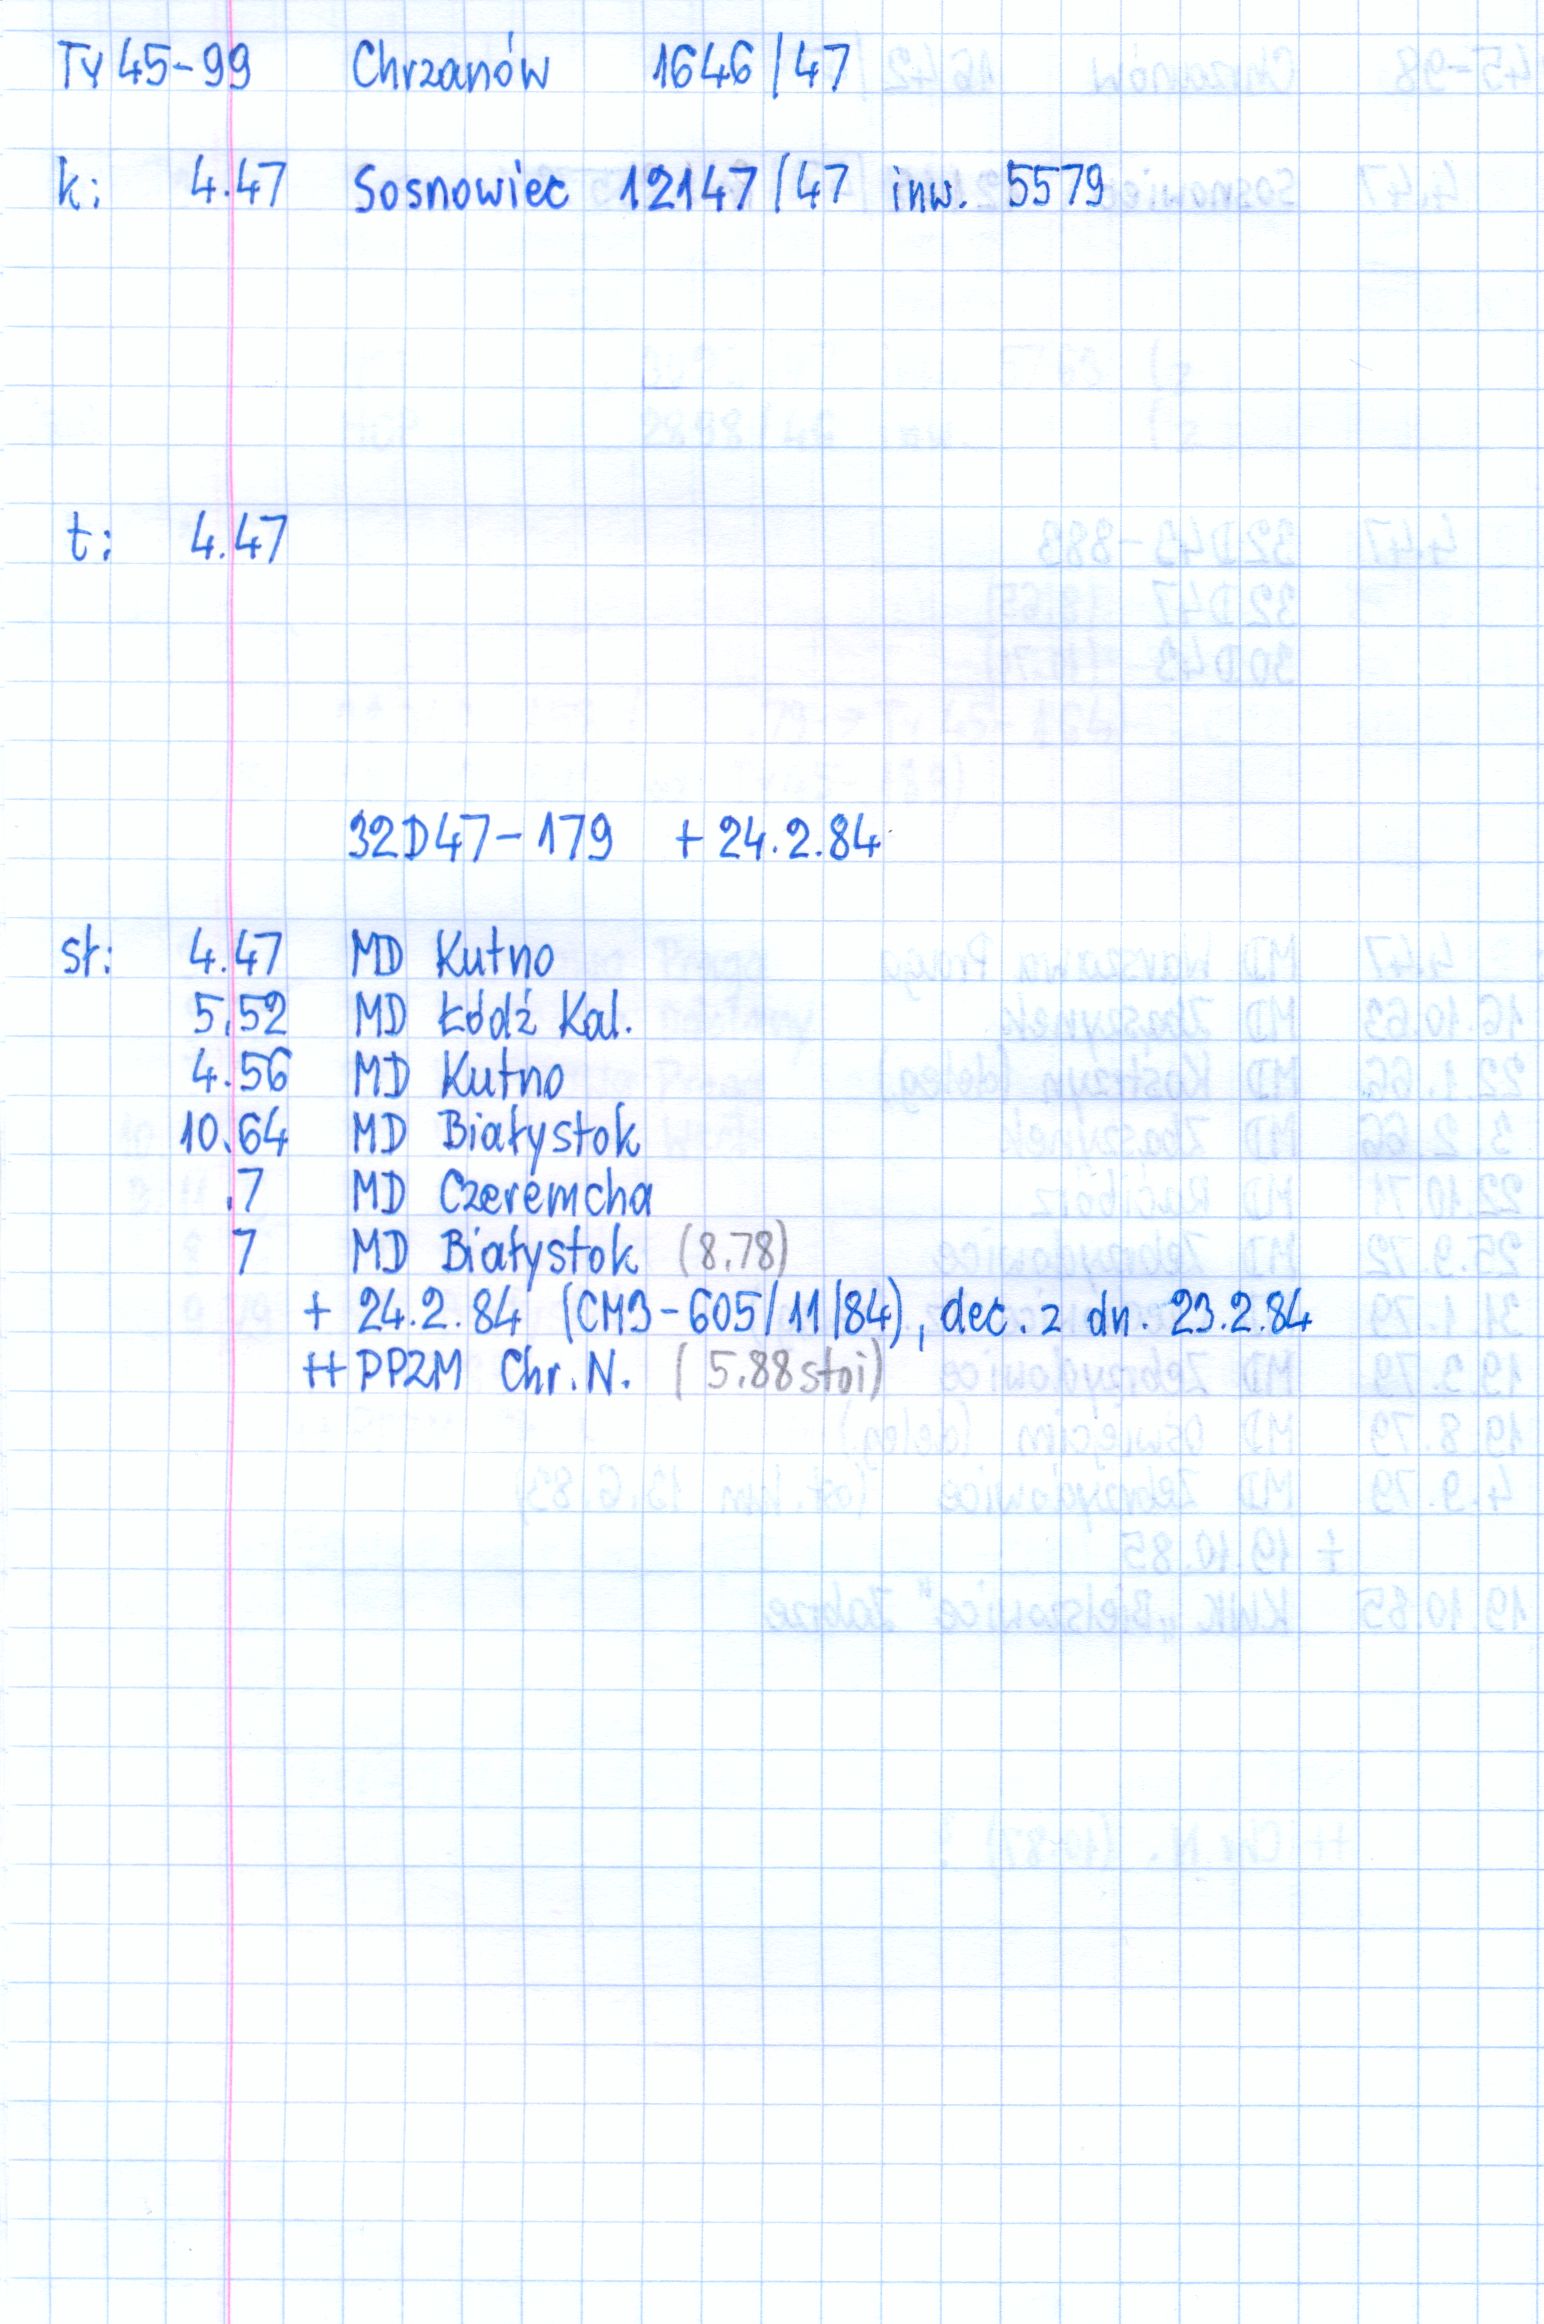 Ty45-99 Chrzanów 1646/47
k: 4.47 Sosnowiec 12147/47 inw. 5579
t: 4.47
32D47-179 + 24.2.84
sł: 4.47 MD Kutno
5.52 MD Łódź Kal.
4.56 MD Kutno
10.64 MD Białystok
.7 MD Czeremcha
7 MD Białystok (8.78)
+ 24.2.84 (CM3-605/11/84), dec. z dn. 23.2.84
++ PPZM Chr.N. (5.88 stoi)